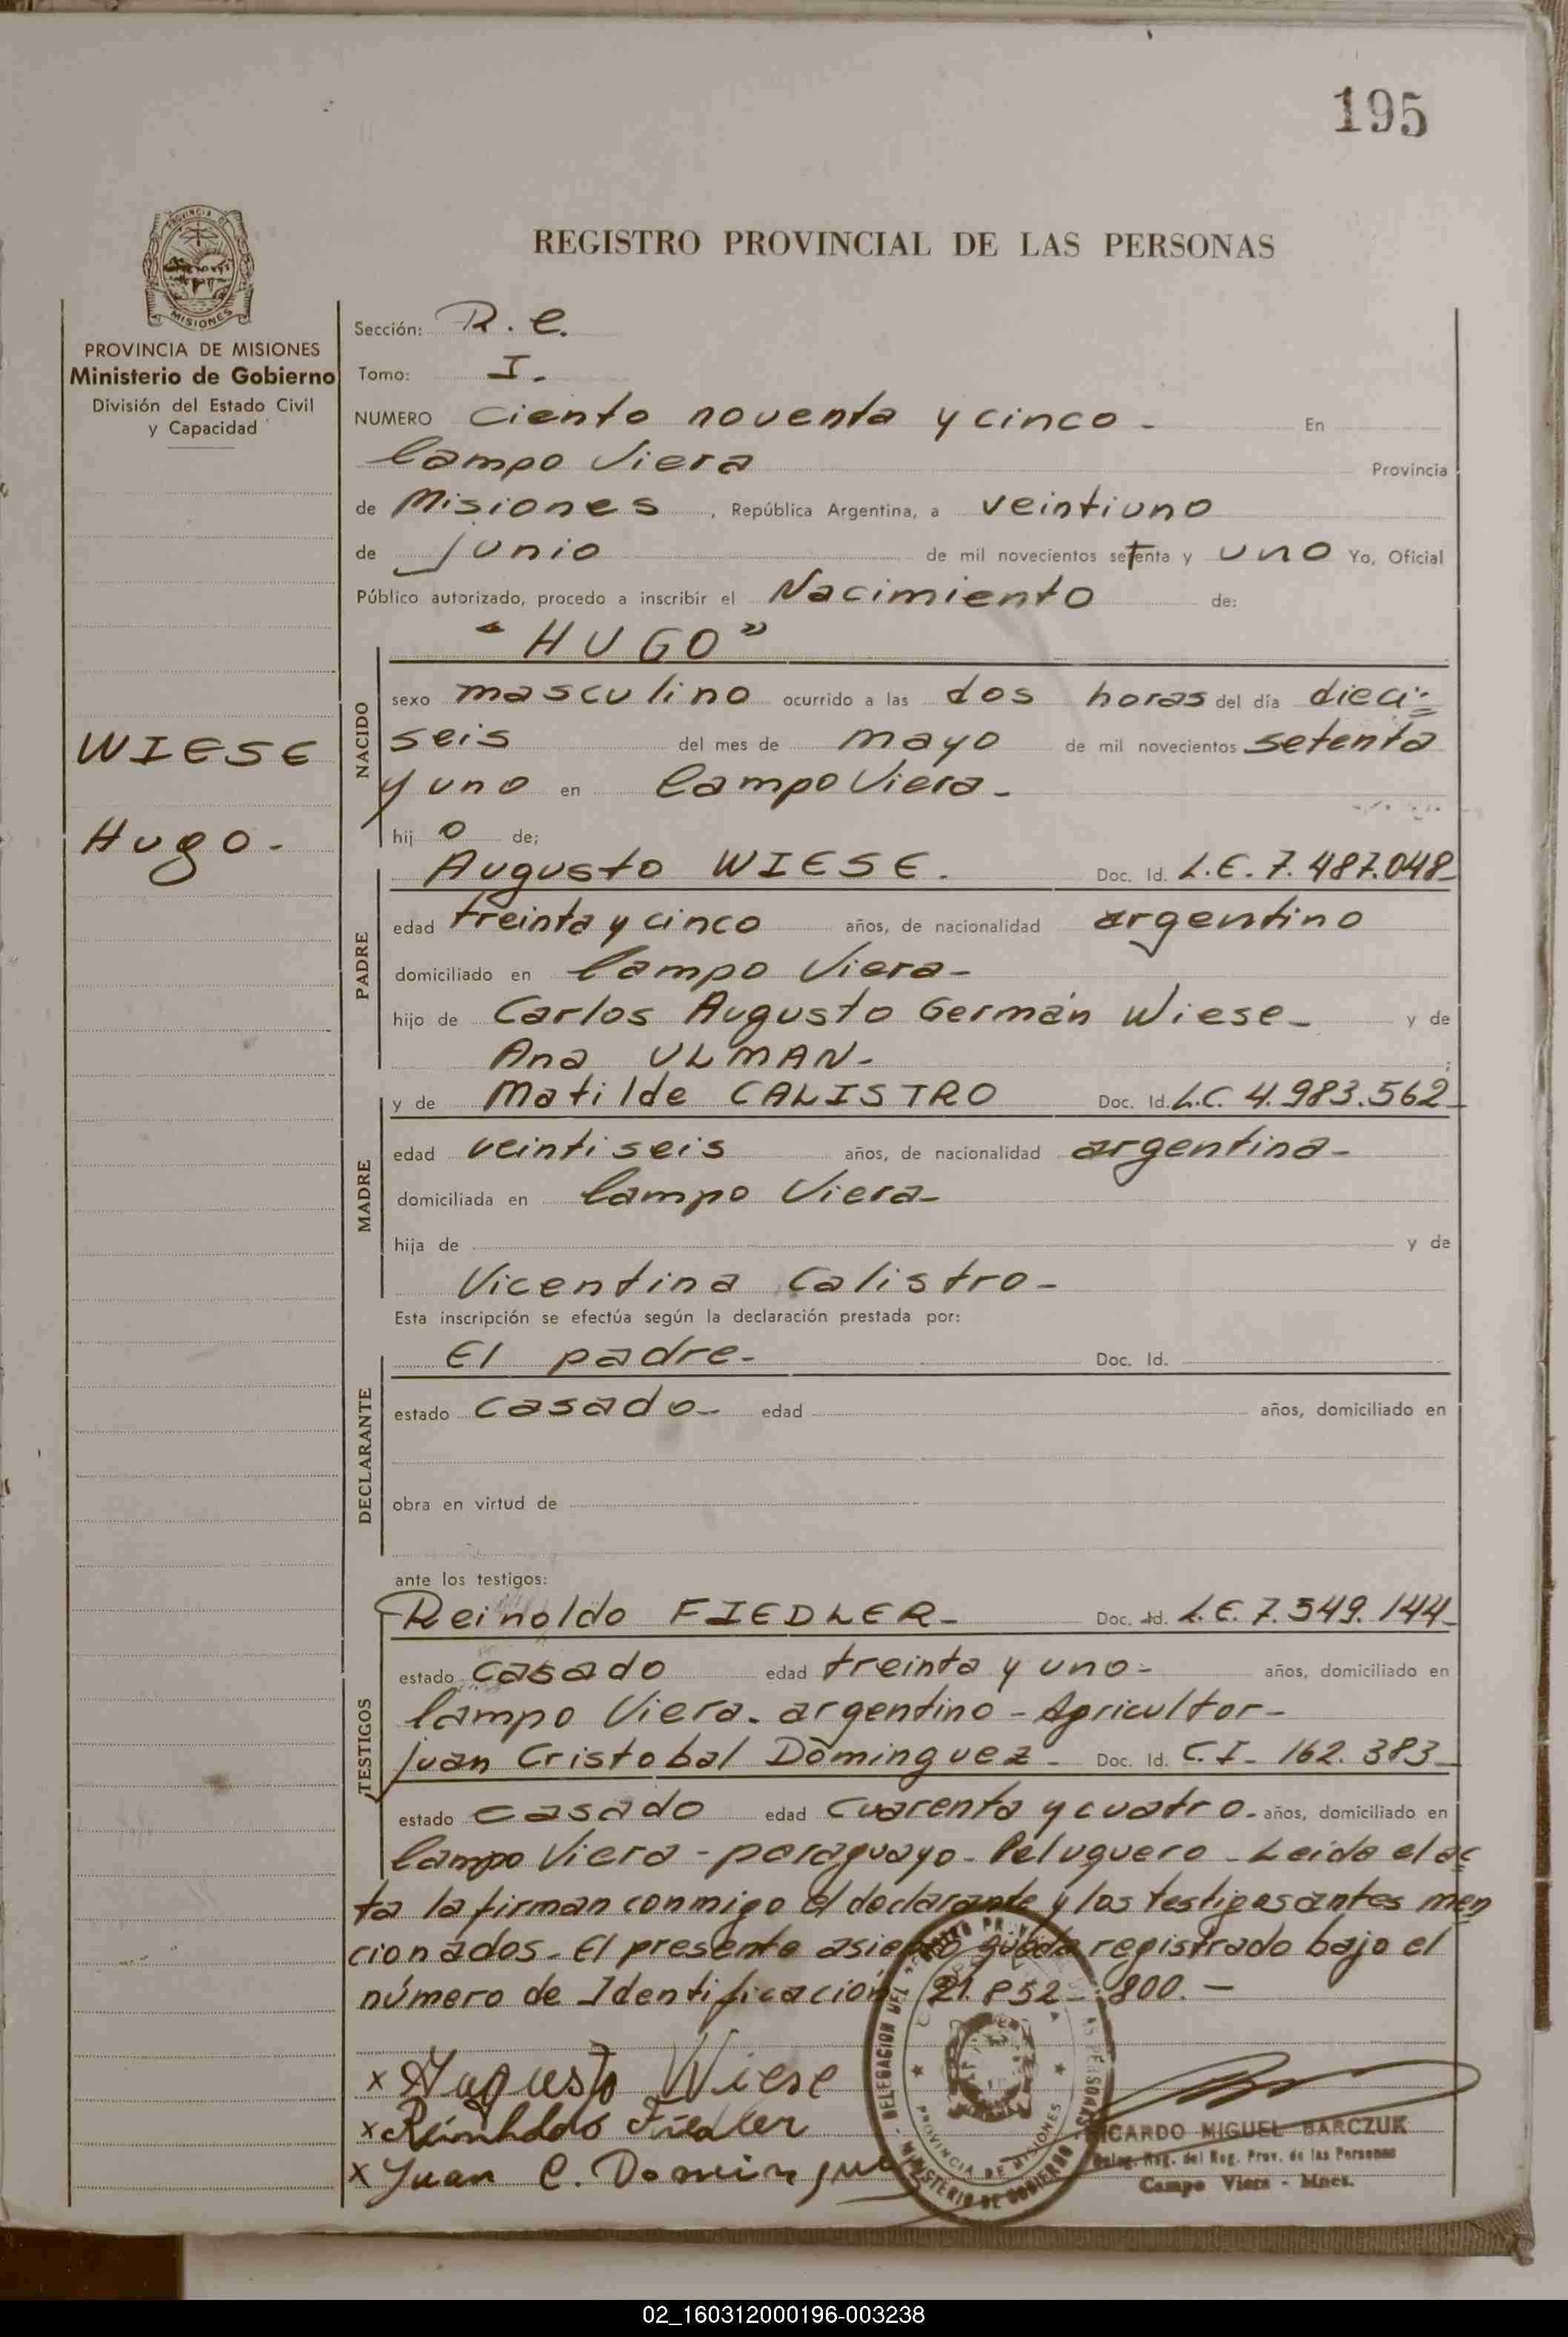 195
REGISTRO PROVINCIAL DE LAS PERSONAS
PROVINCIA DE MISIONES
Ministerio de Gobierno
División del Estado Civil
y Capacidad
WIESE
Hugo.-
Sección: R. C.
Tomo: I.-
NUMERO Ciento noventa y cinco.- En
Campo Viera Provincia
de Misiones, República Argentina, a veintiuno
de junio de mil novecientos setenta y uno Yo, Oficial
Público autorizado, procedo a inscribir el Nacimiento de:
"HUGO"
NACIDO
sexo masculino ocurrido a las dos horas del día dieci=
seis del mes de mayo de mil novecientos setenta
y uno en Campo Viera.-
hijo de;
PADRE
Augusto WIESE. Doc. Id. L.E. 7.487.048-
edad treinta y cinco años, de nacionalidad argentino
domiciliado en Campo Viera-
hijo de Carlos Augusto Germán Wiese- y de
Ana ULMAN- ;
MADRE
y de Matilde CALISTRO Doc. Id. L.C. 4.983.562-
edad veintiseis años, de nacionalidad argentina-
domiciliada en Campo Viera-
hija de y de
Vicentina Calistro-
Esta inscripción se efectúa según la declaración prestada por:
DECLARANTE
El padre- Doc. Id.
estado casado- edad años, domiciliado en
obra en virtud de
ante los testigos:
TESTIGOS
Reinoldo FIEDLER- Doc. Id. L.E. 7.549.144-
estado casado edad treinta y uno- años, domiciliado en
Campo Viera. argentino - Agricultor-
Juan Cristobal Dominguez- Doc. Id. C.I- 162.383-
estado casado edad cuarenta y cuatro- años, domiciliado en
Campo Viera - paraguayo- Peluquero - Leida el ac
ta la firman conmigo el declarante y los testigos antes men
cionados. El presente asiento queda registrado bajo el
número de Identificación 21.852-800.-
x Augusto Wiese
x Reinholdo Fiedler
x Juan C. Dominguez
RICARDO MIGUEL BARCZUK
Deleg. Reg. del Reg. Prov. de las Personas
Campo Viera - Mnes.
PROVINCIA DE MISIONES
MINISTERIO DE GOBIERNO
02_160312000196-003238